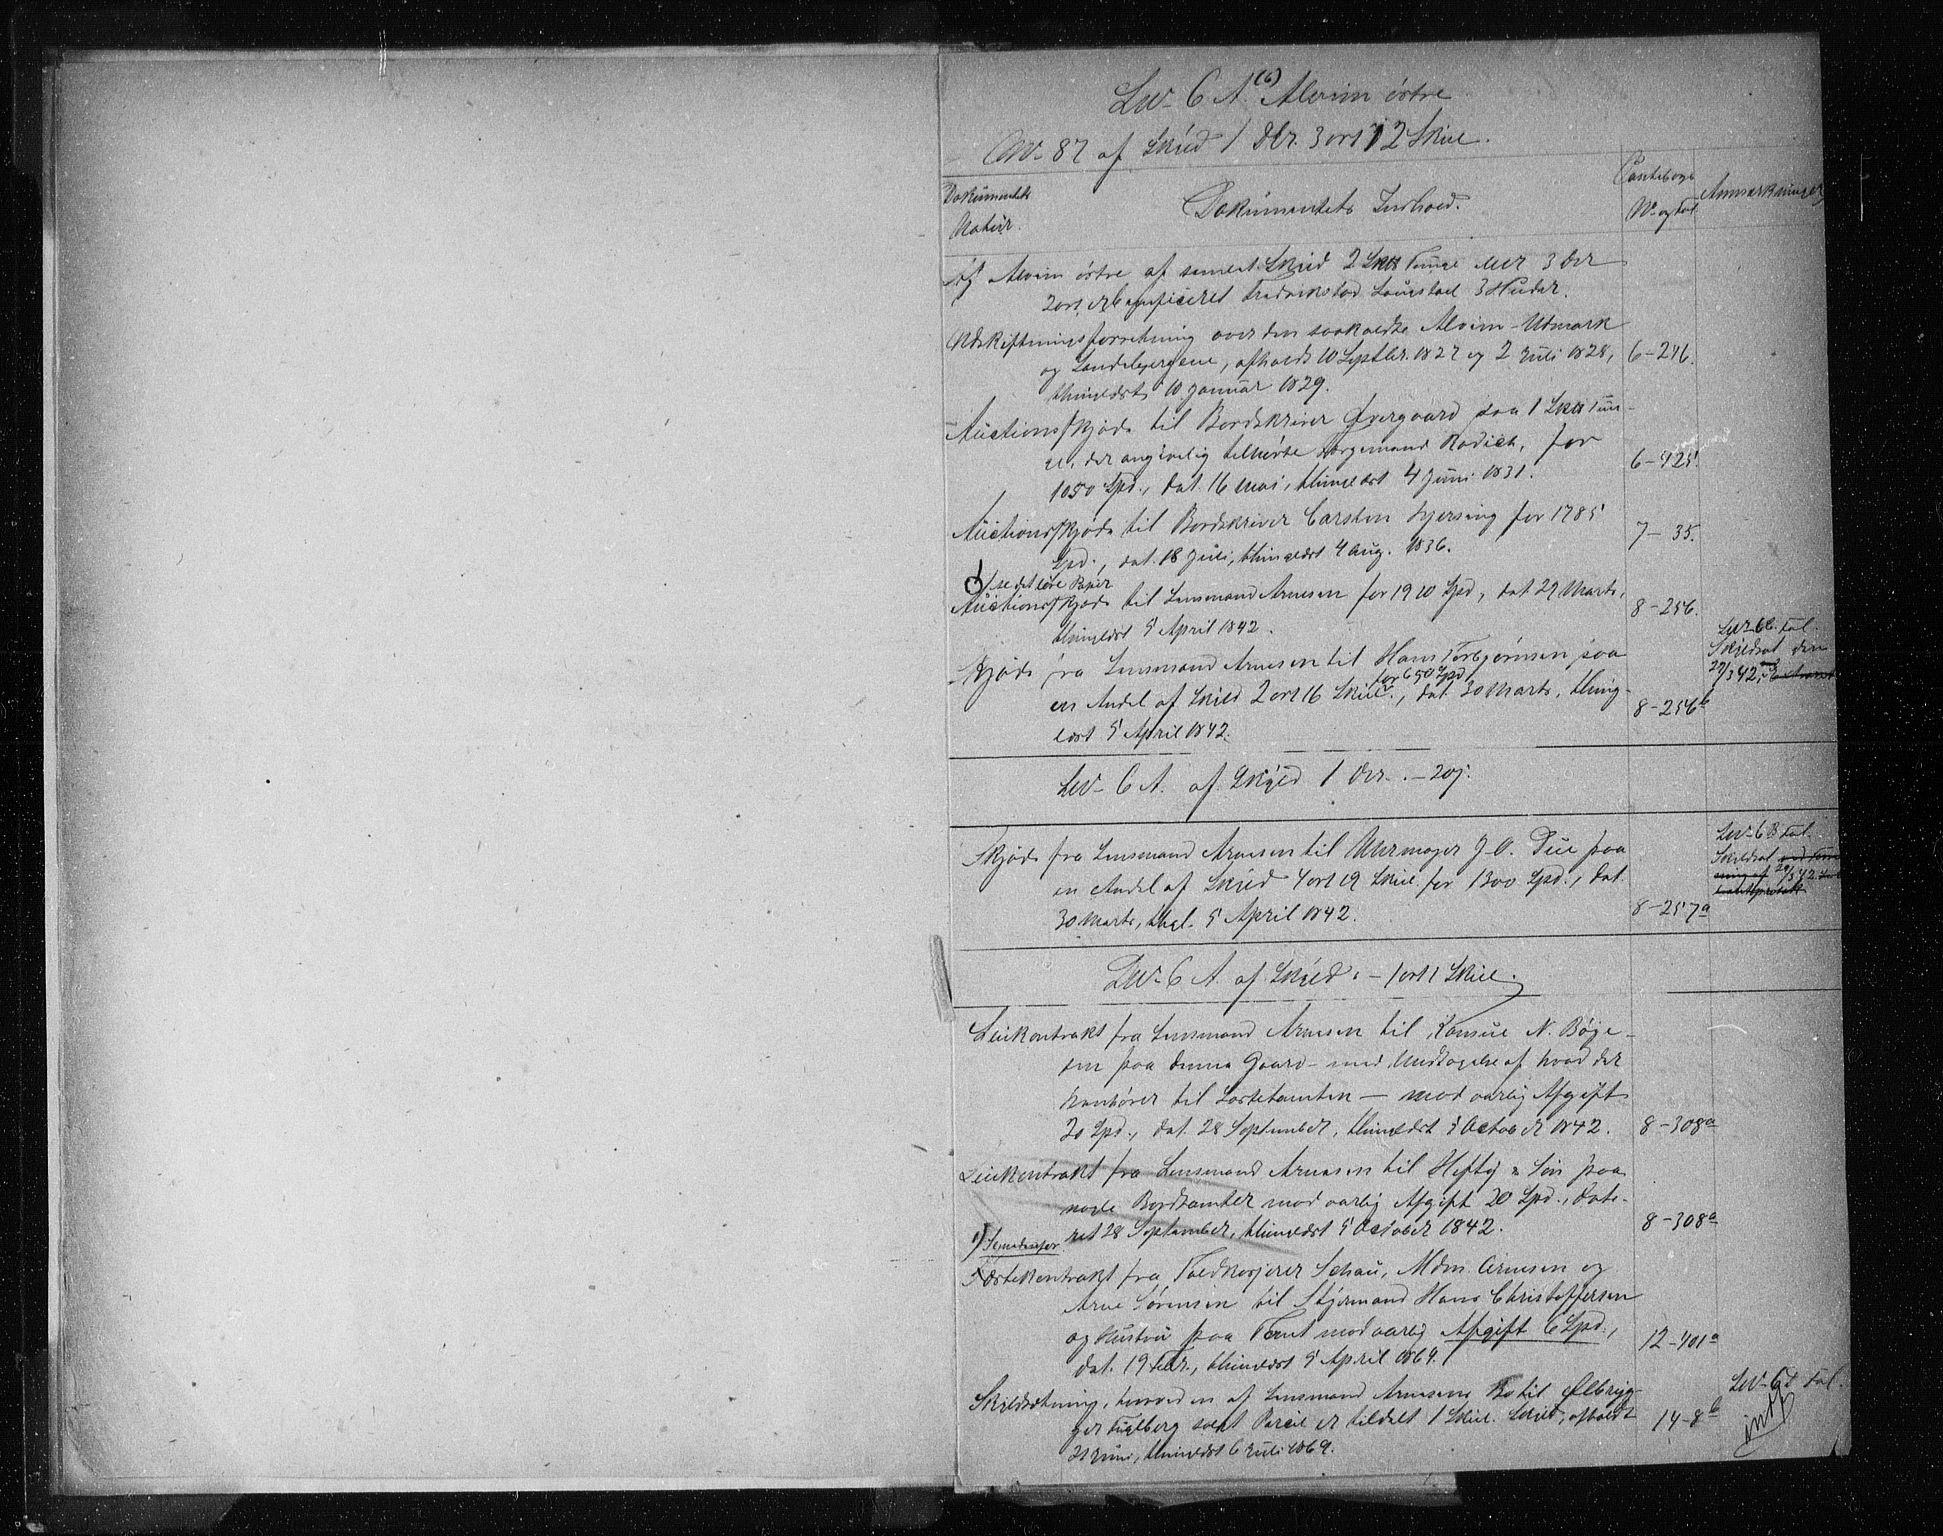 Lnr 6 A (6) Alvim østre
Mnr 87 af Skyld 1 Dlr. 3 ort 12 Skill.
Dokumentets Natur.
Dokumentets Indhold.
Pantebogs Nr og Fol.
Anmærkninger
Alvim østre af samlet Skyld 2 Skls Tunge eller 3 Dlr
2 ort, er beneficeret Fredrikstad Laugstoel 3 Huder.
Udskiftningsforretning over den saakaldte Alvim-Udmark
og Sandebergene, afholdt 10 Septbr. 1827 og 2 Juli 1828, 6-246.
thinglæst 10 Januar 1829.
Auctionsskjøde til Bordskriver Overgaard paa 1 Skls Tun-
ge, der angivelig tilhørte Sergeant Rodich, for
1050 Spd., dat. 16 Mai, thinglæst 4 Juni 1831. 6-425.
Auctionsskjøde til Bordskriver Carsten Gjersing for 1785
Spd., dat. 18 Juli, thinglæst 4 Aug. 1836. 7-35.
se det løse Papir
Auctionsskjøde til Lensmand Arnesen for 1920 Spd, dat 29 Marts,
thinglæst 5 April 1842. 8-256.
Skjøde fra Lensmand Arnesen til Hans Torbjørnsen paa
for 650 Spd
en Andel af Skyld 2 ort 16 Skill., dat. 30 Marts, thing-
læst 5 April 1842. 8-256b
Skyldsat den
29/3 42,
Lnr 6 A. af Skyld 1 Dlr. - 20 s.
Skjøde fra Lensmand Arnesen til Uhrmager J. O. Due paa
en Andel af Skyld 4 ort 19 Skill. for 1300 Spd., dat.
30 Marts, thgl. 5 April 1842. 8-257a
Lnr 6 B Fol.
Skyldsat
29/3 42
Lnr 6 A. af Skyld. - 1 ort 1 Skill.
Leiekontrakt fra Lensmand Arnesen til Konsul N. Bøge-
sen paa denne Gaard - med Undtagelse af hvad der
henhører til Lastetomten - mod aarlig Afgift
20 Spd., dat. 28 September, thinglæst 5 October 1842. 8-308a
Leiekontrakt fra Lensmand Arnesen til Heftig & Søn paa
nogle Bordtomter mod aarlig Afgift 20 Spd., date-
ret 28 September, thinglæst 5 October 1842. 8-308a
Se nedenfor
Fæstekontrakt fra Toldkasjerer Schau, Mdm. Arnesen og
Arne Sørensen til Styrmand Hans Christoffersen
og Hustru paa Tomt mod aarlig Afgift 6 Spd.,
dat. 19 Febr., thinglæst 5 April 1864. 12-401a
Skyldsætning, hvorved en af Lensmand Arnesens Bo til Ølbryg-
ger Fuglberg solgt Parcel er tildelt 1 Skill. Skyld, afholdt
21 Juni, thinglæst 6 Juli 1869. 14-8b
Lnr 6d Fol.